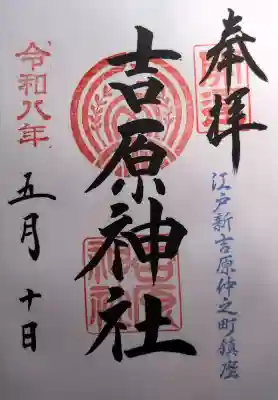 奉拝
開運
江戸新吉原仲之町鎮座
吉原神社
吉原神社
令和八年
五月十日